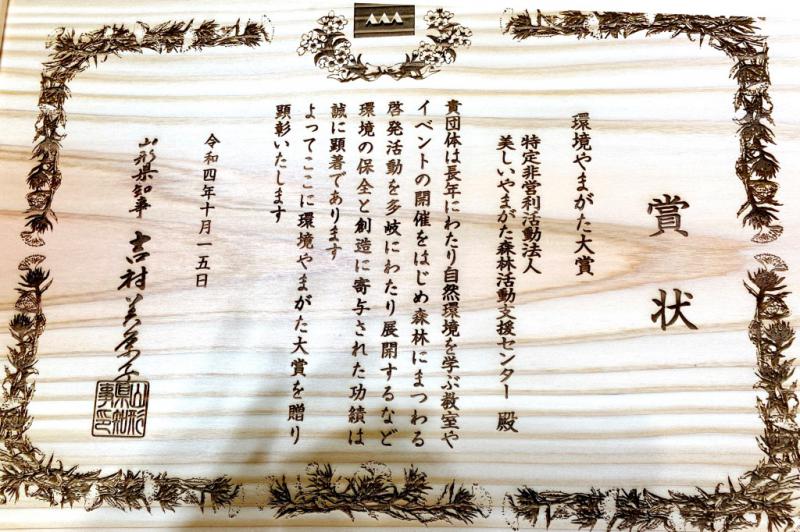 賞状
環境やまがた大賞
特定非営利活動法人
美しいやまがた森林活動支援センター 殿
貴団体は長年にわたり自然環境を学ぶ教室や
イベントの開催をはじめ森林にまつわる
啓発活動を多岐にわたり展開するなど
環境の保全と創造に寄与された功績は
誠に顕著であります
よってここに環境やまがた大賞を贈り
顕彰いたします
令和四年十月一五日
山形県知事 吉村美栄子
山形県知事印